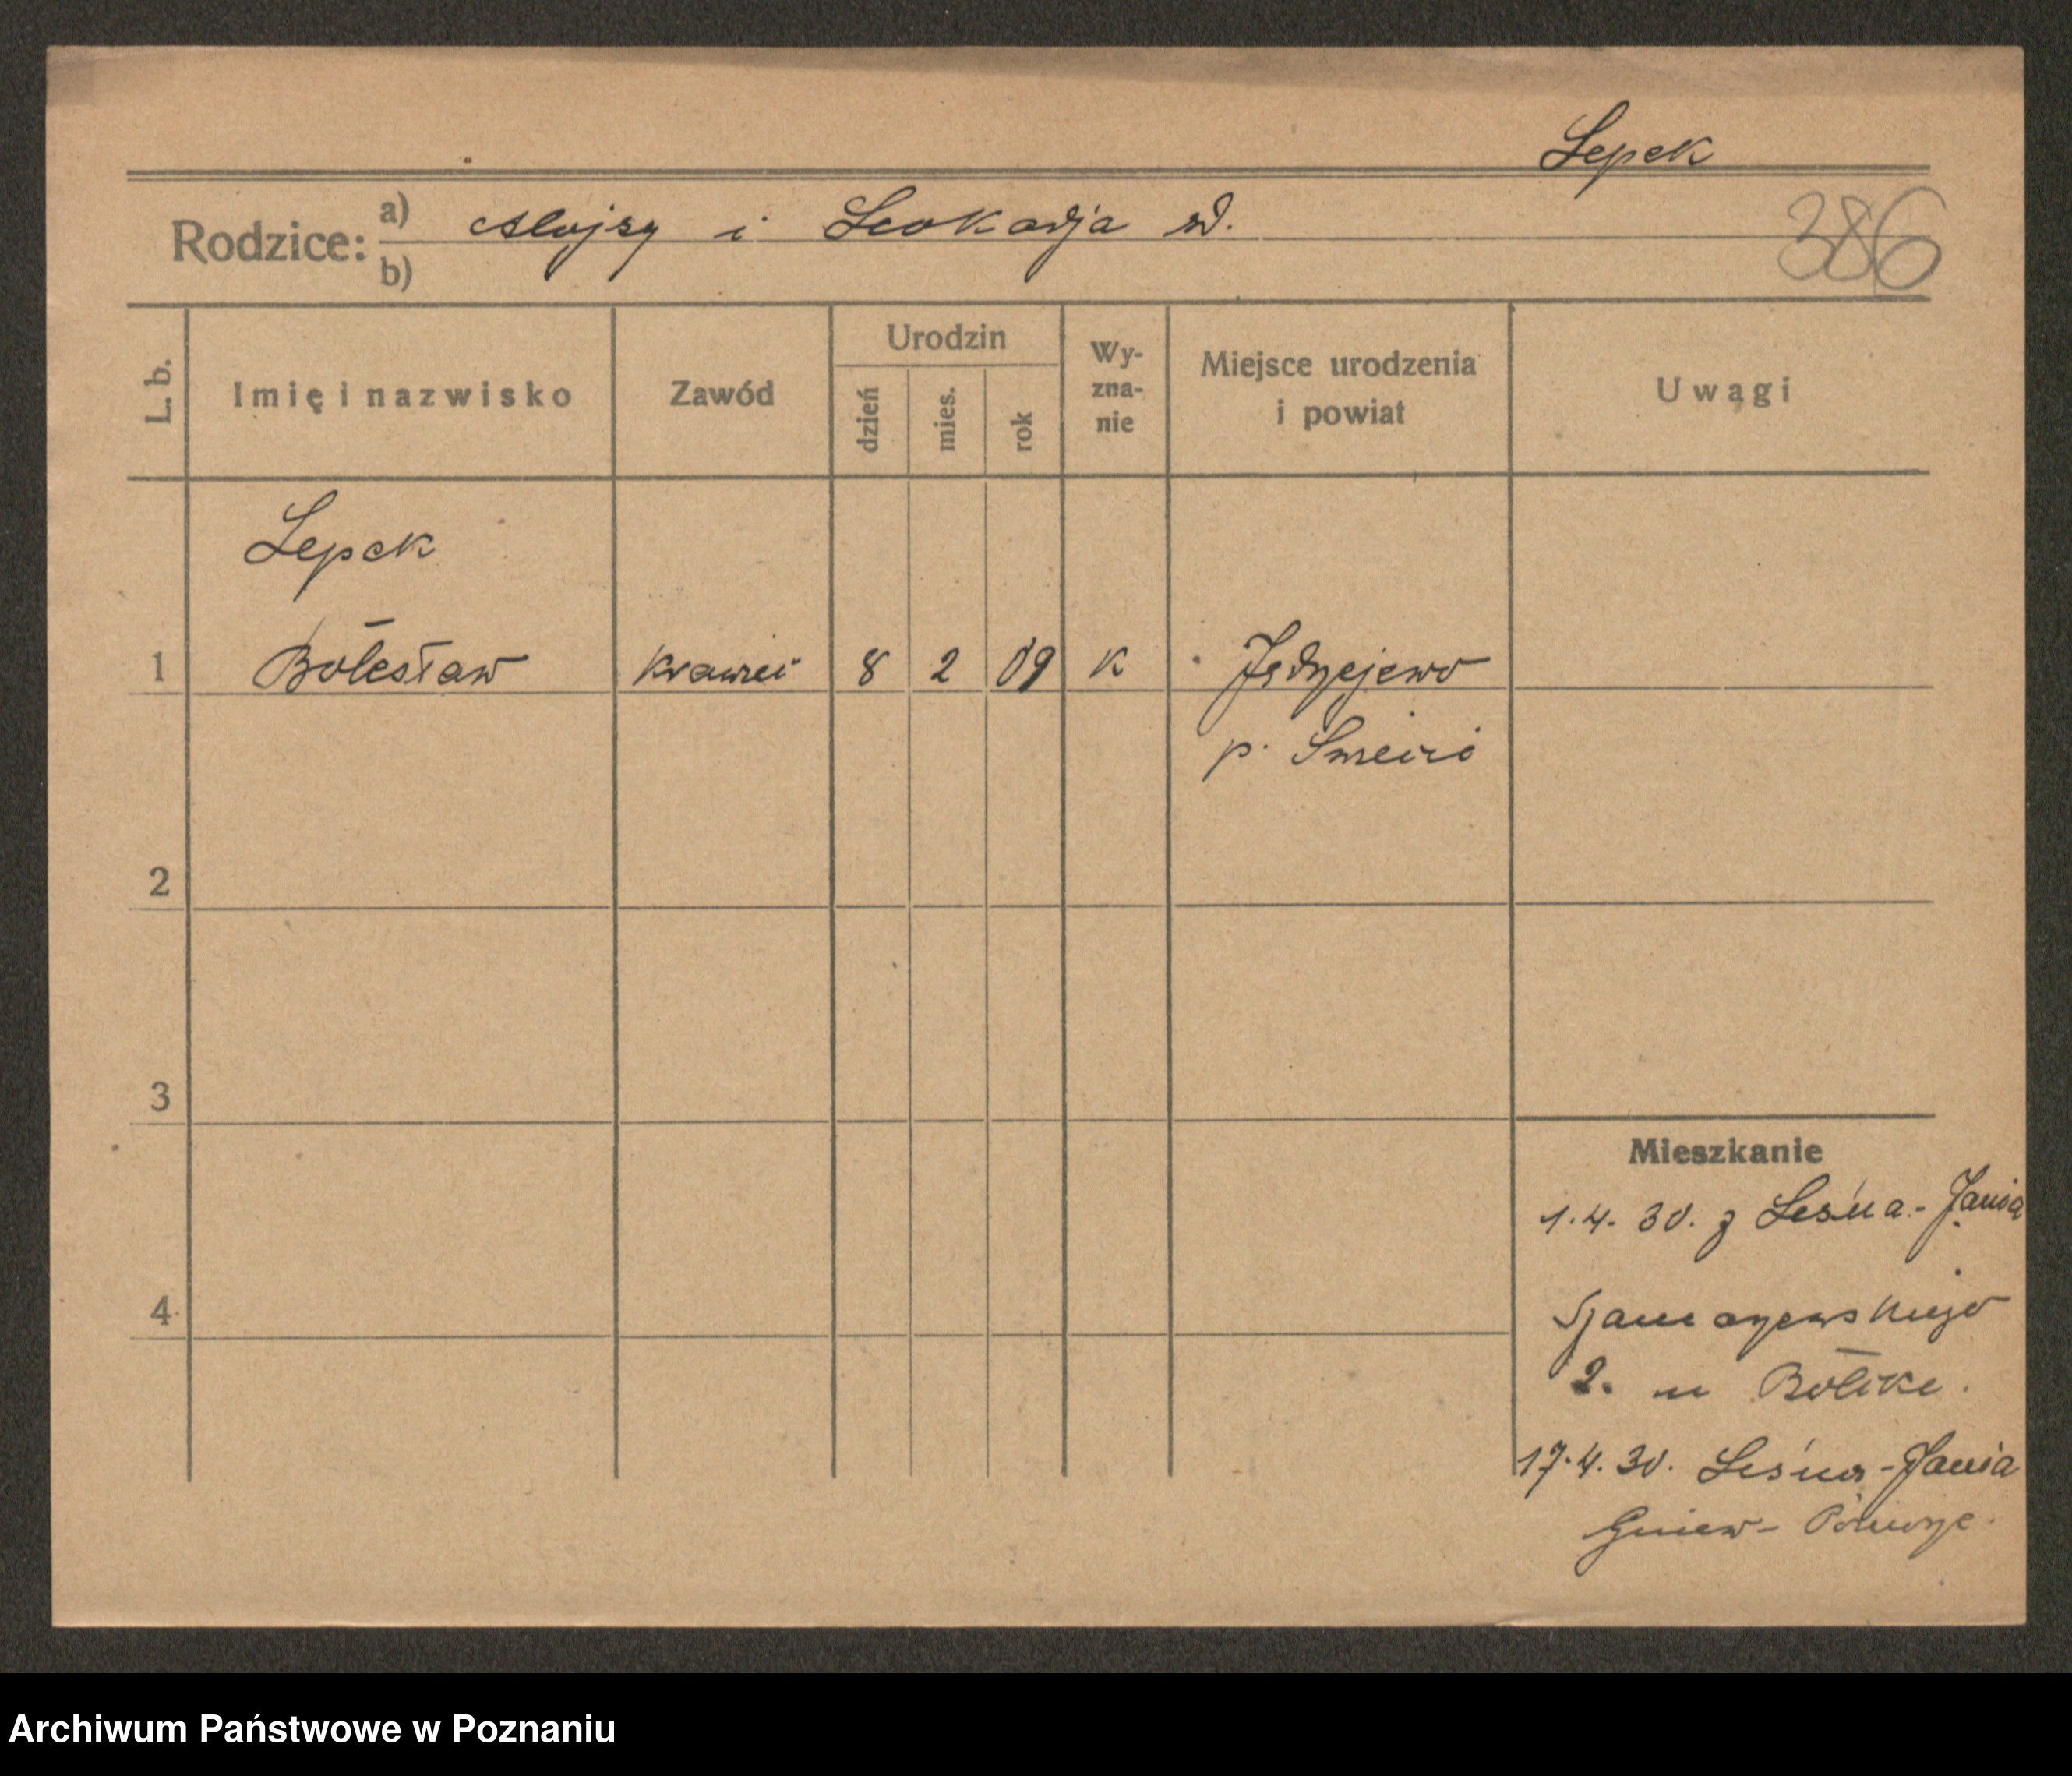 Lepek
Rodzice: a) Alojzy i Leokadja
b)
386
L. b.
Imię i nazwisko
Zawód
Urodzin
dzień
mies.
rok
Wy-
zna-
nie
Miejsce urodzenia
i powiat
Uwagi
Lepek
1 Bolesław krawiec 8 2 09 K Jędrzejewo
p. Świecie
2
3
Mieszkanie
1.4.30. z Leśna-Jania
4
2. u
17.4.30. Leśna-Jania
Gniew- Pomorze.
Archiwum Państwowe w Poznaniu